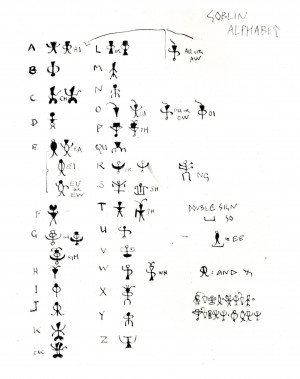 GOBLIN
ALPHABET
A AI
B
C CH
D
E EA
EI
EU
OR
EW
F
G
GH
H
I
J
K
CK
L
M
N
O OA OU OR OW OI
P PH
QU
R
S SH
T TH
U
V
W WH
X
Y
Z
AU OR
AW
NG
DOUBLE SIGN
SO
= EE
= AND